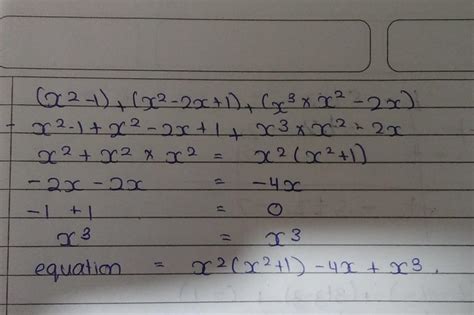 (x²-1), (x²-2x+1), (x³ × x² - 2x)
x²-1 + x² - 2x + 1 + x³ × x² - 2x
x² + x² × x² = x²(x²+1)
-2x - 2x = -4x
-1 +1 = 0
x³ = x³
equation = x²(x²+1) - 4x + x³.